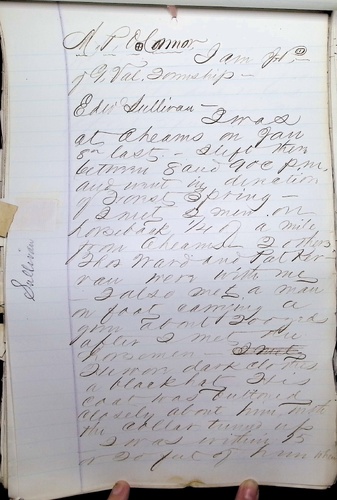 M. P. O'Connor.
I am J.P.
of G. Val. Township —
Edw Sullivan — I was
at Cheams on Jan
8th last. I left then
between 8 and 9 o'c p.m.
and went in direction
of Forest Spring —
I met 2 men on
horseback 1/4 of a mile
from Cheams 2 others
Thos Ward and Pat
were with me
— I also met a man
on foot carrying a
gun about 200 yds
after I met the
horsemen — I met
He won dark clothes
a black hat His
coat was buttoned
closely about him with
the collar turned up
I was within 15
or 20 feet of him when
Sullivan